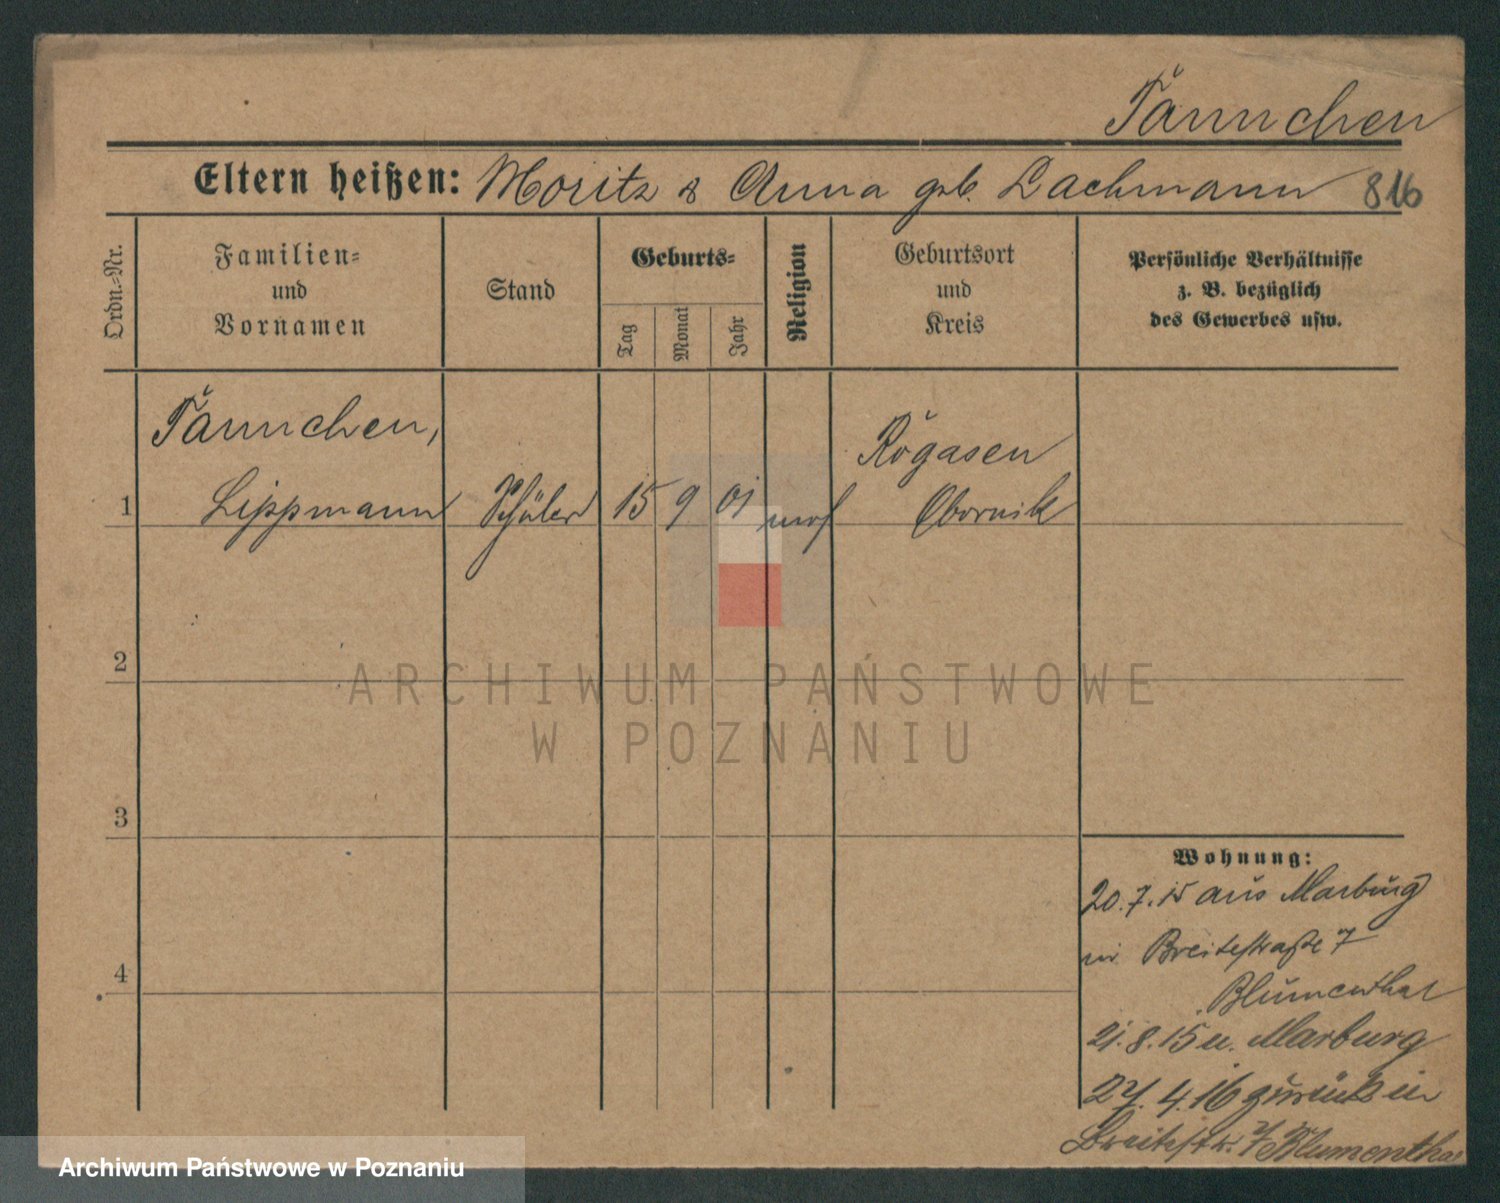 Tännchen
Eltern heißen: Moritz & Anna geb. Lachmann 816
Ordn.-Nr.
Familien-
und
Vornamen
Stand
Geburts-
Tag
Monat
Jahr
Religion
Geburtsort
und
Kreis
Persönliche Verhältnisse
z. B. bezüglich
des Gewerbes usw.
Tännchen,
Rogasen
1 Lippmann Schüler 15 9 01 mos Obornik
2
ARCHIWUM PAŃSTWOWE
W POZNANIU
3
Wohnung:
20.7.15 aus Marburg
in Breitestraße 7
4
Blumenthal
21.8.15 n. Marburg
27.4.16 zurück in
Breitestr. 7 Blumenthal
Archiwum Państwowe w Poznaniu